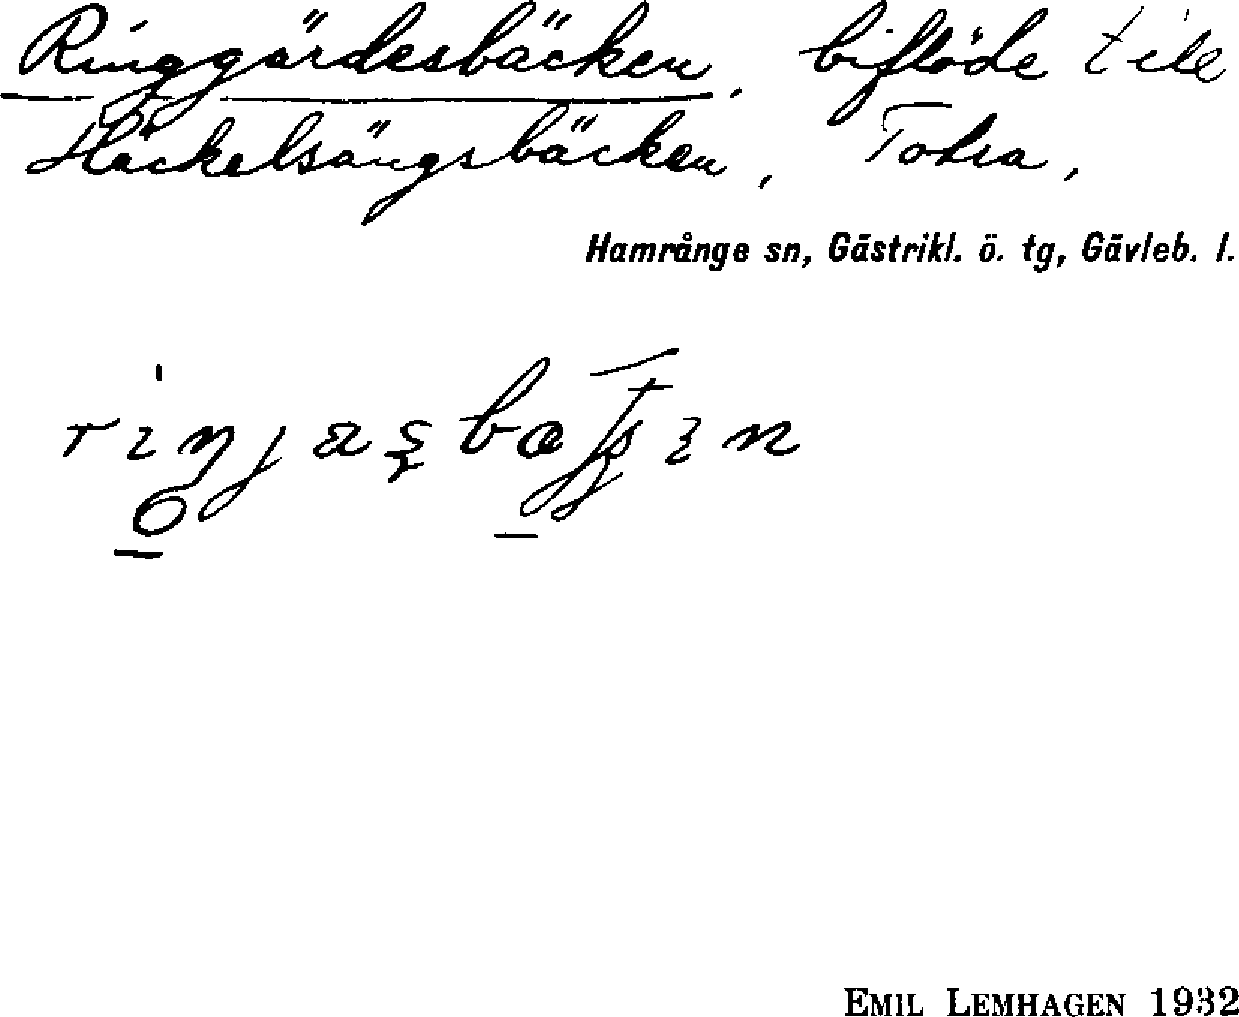 Ringgärdesbäcken, biflöde till
Häckelsängsbäcken, Totra,
Hamrånge sn, Gästrikl. ö. tg, Gävleb. l.
EMIL LEMHAGEN 1932